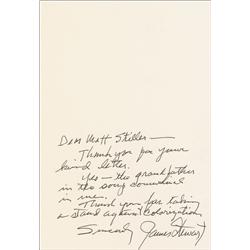 Dear Matt Stiller —
Thank you for your
kind letter.
Yes — the grandfather
in the song
in me.
Thank you for taking
a stand against colorization.
Sincerely James Stewart